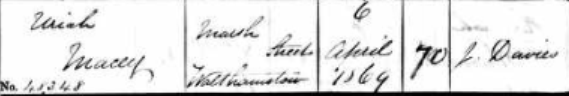 Uriah
Macey
No. 48348
Marsh
Street
Walthamstow
6
April
1869
70
J. Davies